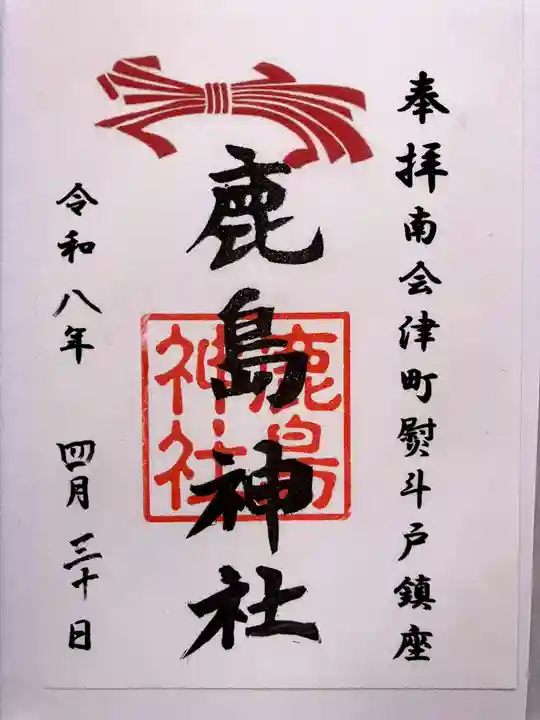 奉拝南会津町熨斗戸鎮座
鹿島神社
鹿島
神社
令和八年 四月 三十日